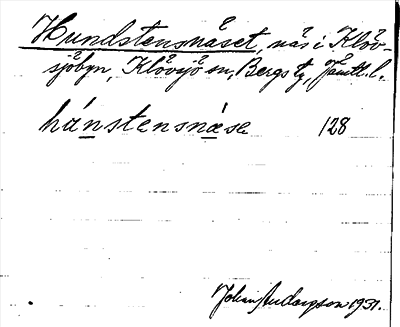 Hundstensnäset, näs i Klöv-
sjöbyn, Klövsjö sn, Bergs tg, Jämtl. l.
hánstensnäse 128
Johan Andersson 1931.